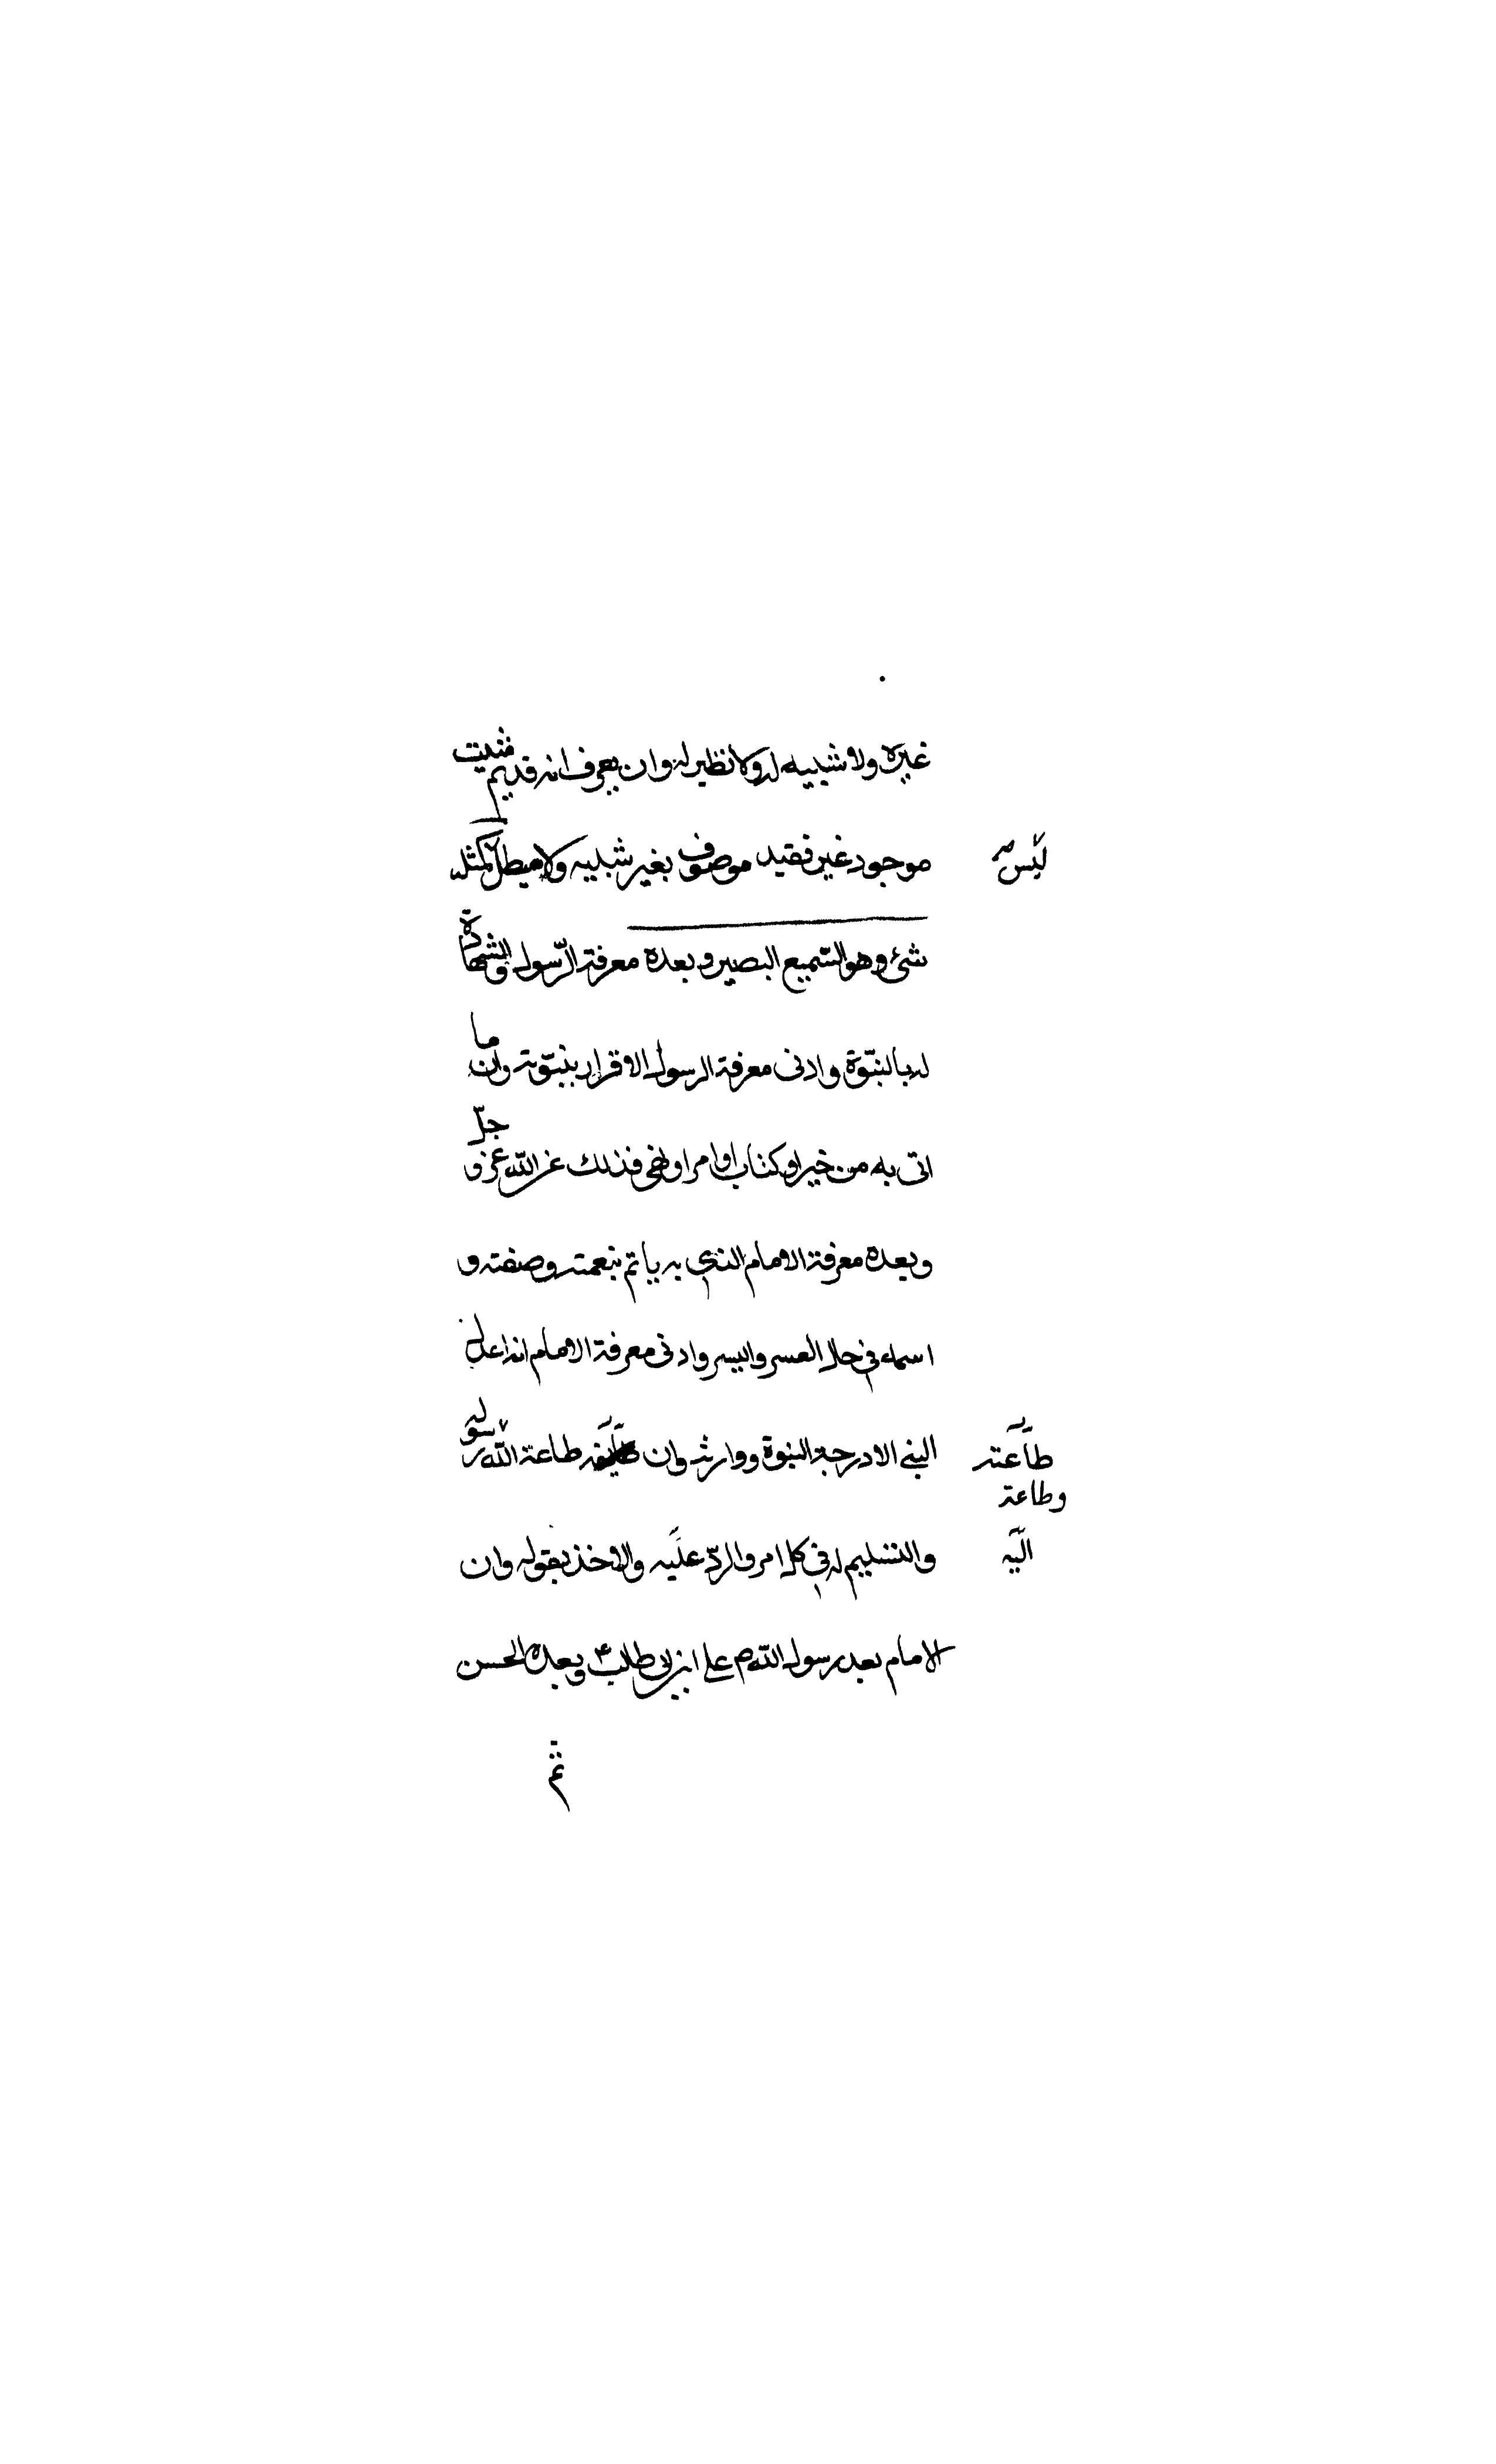 غيره ولا شبيه له ولا نظير له وان يعرف انه قديم مثبت
موجود غير فقيد موصوف بغير شبيه ولا مبطل كمثله
ليس
شئ وهو السّميع البصير وبعده معرفة الرّسول والشهادة
له بالنبوّة وادنى معرفة الرسول الاقرار بنبوّته وان ما
اتى به من خير او كتاب او امر او نهى فذلك عن الله عز و جلّ
وبعده معرفة الامام الذي به ياتم بنعمته وصفته و
اسمه في حال العسر واليسر وادنى معرفة الامام انه عدل
النبي الا درجة النبوة ووارثه وان طاعة الله رسوله
طاعته
وطاعة
والتسليم له في كل امر والردّ عليه والاخذ بقوله وان
اليه
الامام بعد رسول الله ص علي ابن ابي طالب ع وبعده الحسن
ثم